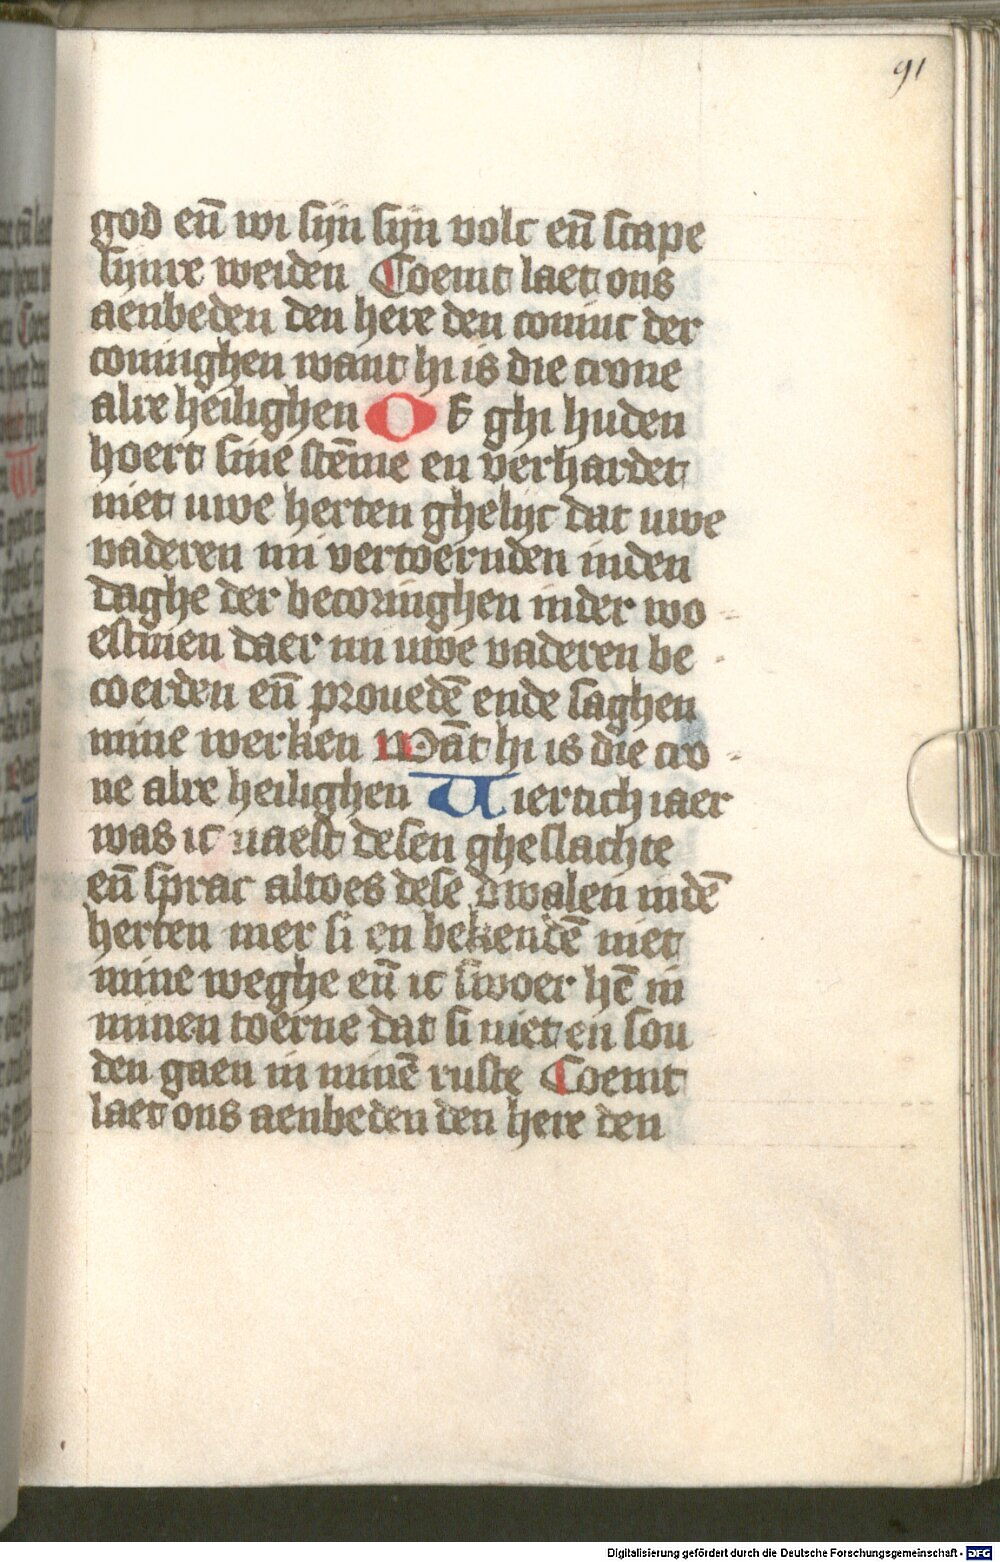 91
god en̄ wi sijn sijn volc en̄ scape
sijnre weiden Coemt laet ons
aenbeden den here den coninc der
coninghen want hi is die crone
alre heilighen Of ghi huden
hoert sine stēme en verhardet
niet uwe herten ghelijc dat uwe
vaderen mi vertoernden inden
daghe der becoringhen inder wo
estinen daer mi uwe vaderen be
coerden en̄ prouedē ende saghen
mine werken Wāt hi is die cro
ne alre heilighen Viertich iaer
was ic naest desen gheslachte
en̄ sprac altoes dese dwalen indē
herten mer si en bekendē niet
mine weghe en̄ ic swoer hē in
minen toerne dat si niet en sou
den gaen in minē ruste Coemt
laet ons aenbeden den here den
Digitalisierung gefördert durch die Deutsche Forschungsgemeinschaft - DFG